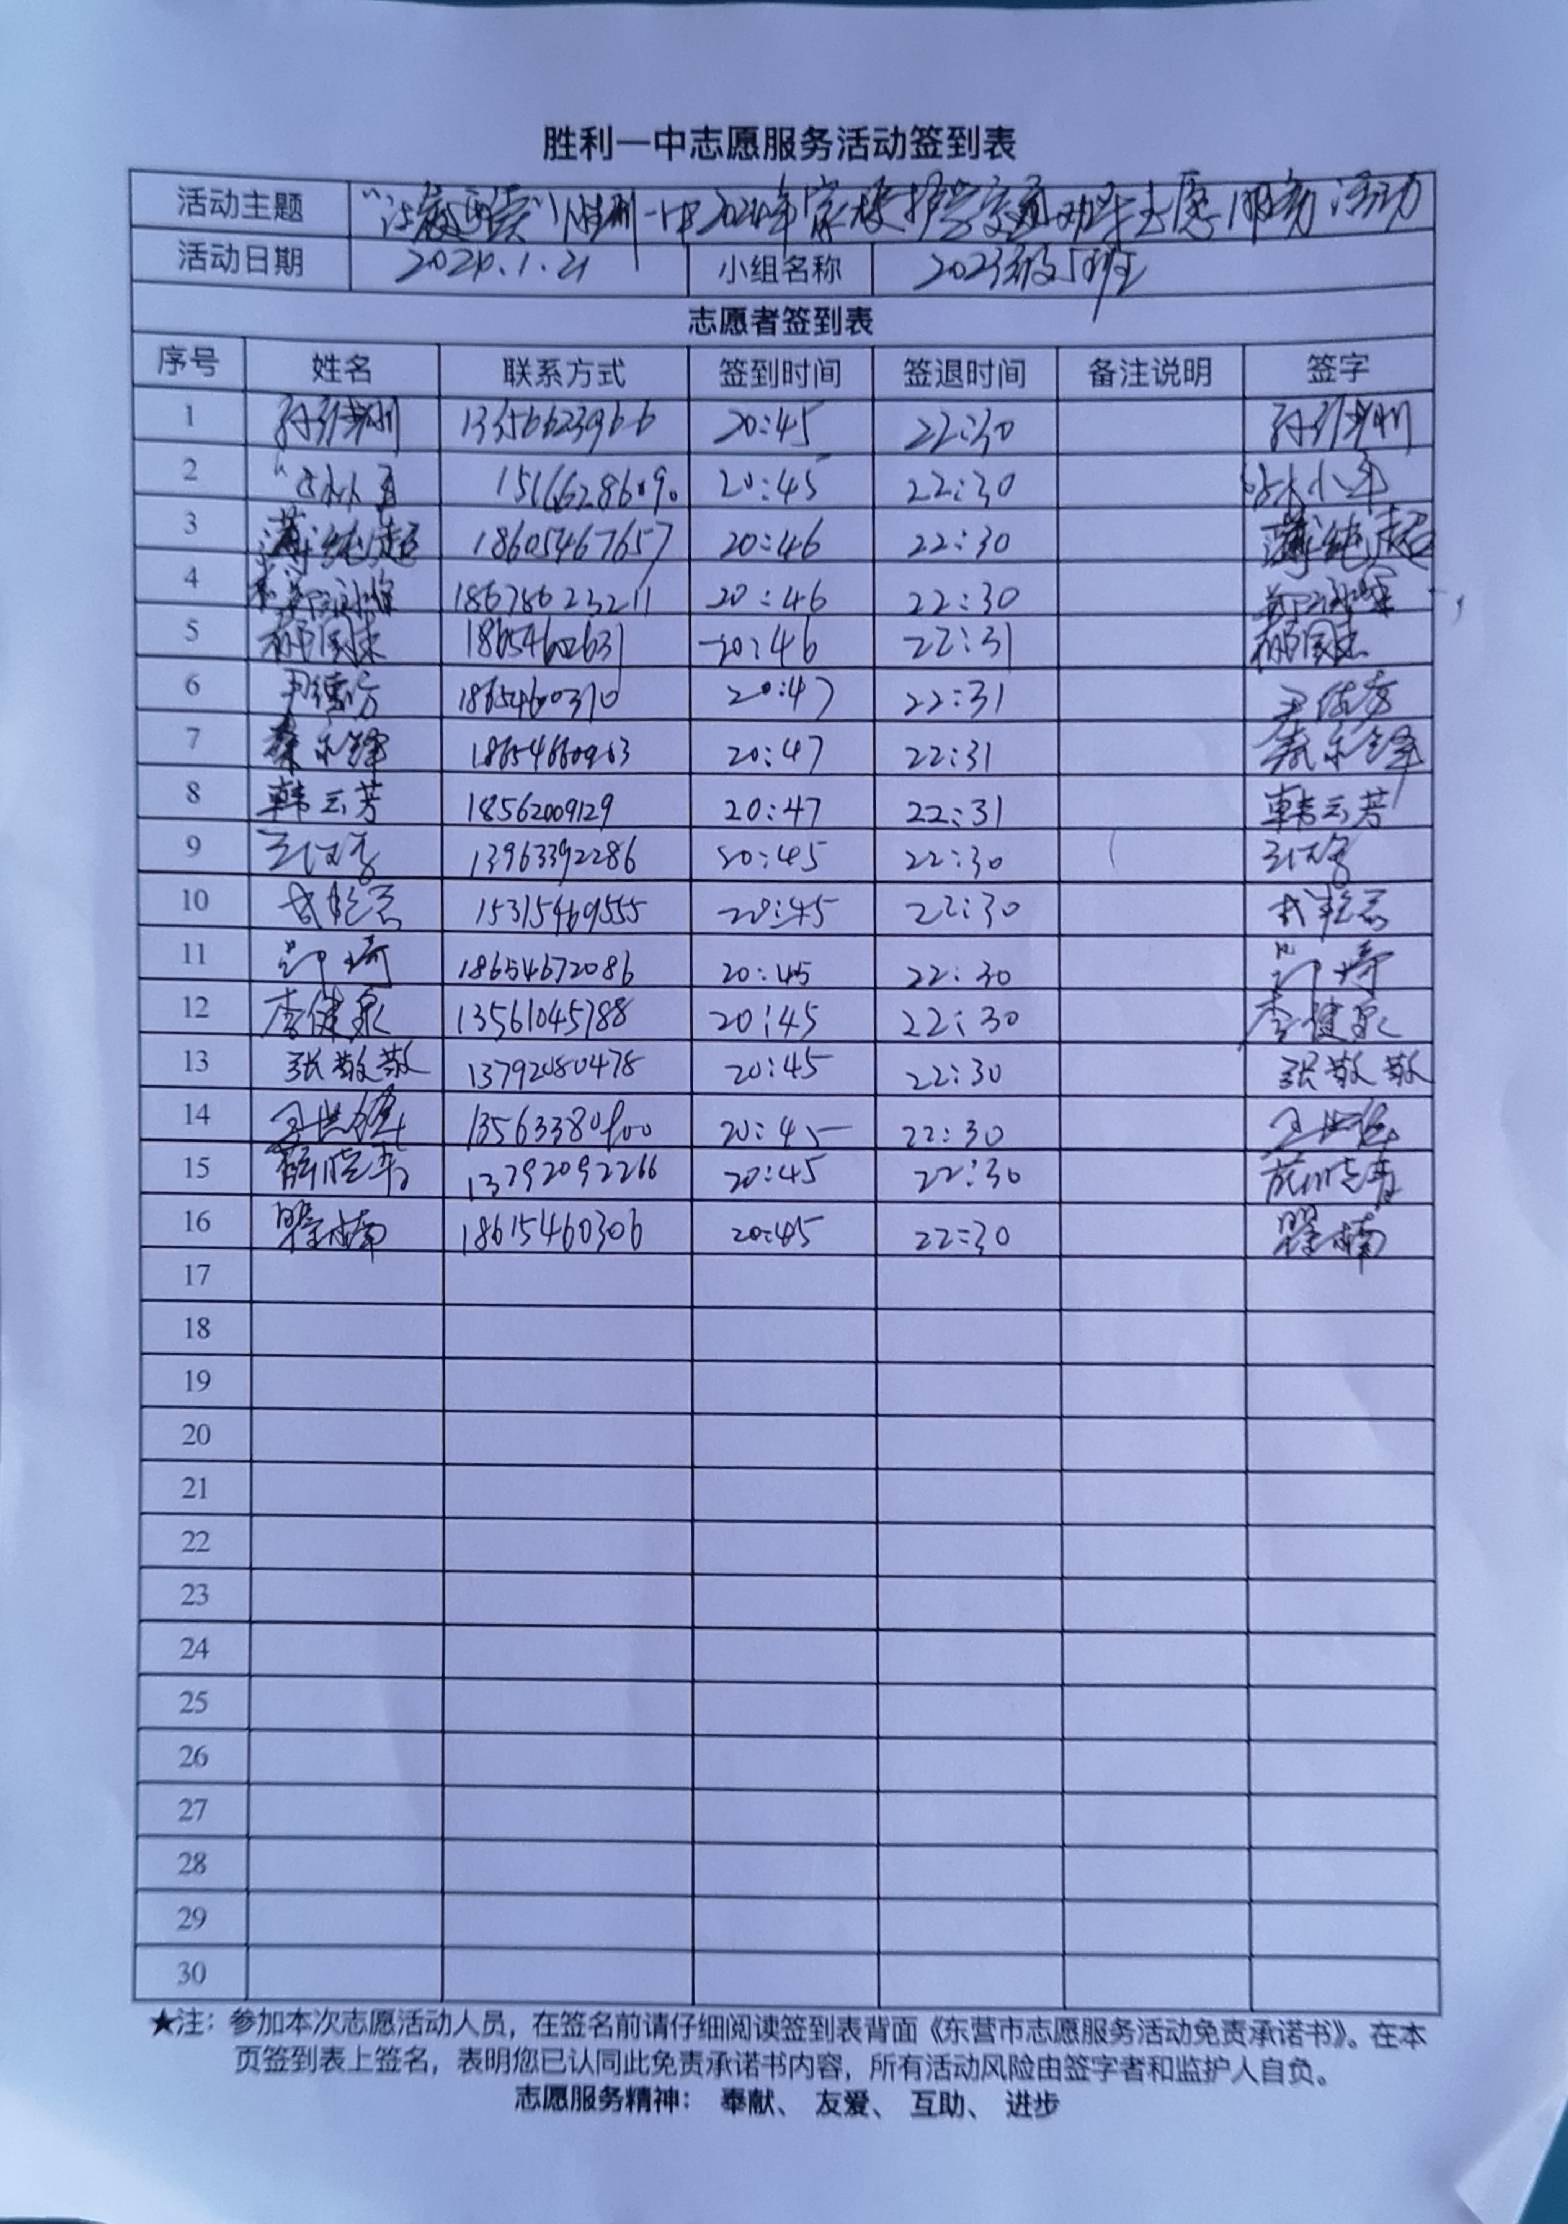 胜利一中志愿服务活动签到表
活动主题 胜利一中2024年家校护学交通劝导志愿服务活动
活动日期 2024.1.21 小组名称 2023级5班
志愿者签到表
序号 姓名 联系方式 签到时间 签退时间 备注说明 签字
1 13356623966 20:45 22:30
2 20:45 22:30
3 薄纯超 18605467657 20:46 22:30 薄纯超
4 18678623211 20:46 22:30
5 18654602631 20:46 22:31
6 尹德芳 18654600370 20:47 22:31 尹德芳
7 秦永锋 18654660963 20:47 22:31 秦永锋
8 韩云芳 18562009129 20:47 22:31 韩云芳
9 13963392286 20:45 22:30
10 15315469555 20:45 22:30
11 18654672086 20:45 22:30
12 李健泉 13561045788 20:45 22:30 李健泉
13 张敬敬 13792080478 20:45 22:30 张敬敬
14 20:45 22:30
15 薛晓青 13792092266 20:45 22:30 薛晓青
16 翟楠 18615460306 20:45 22:30 翟楠
17
18
19
20
21
22
23
24
25
26
27
28
29
30
★注：参加本次志愿活动人员，在签名前请仔细阅读签到表背面《东营市志愿服务活动免责承诺书》。在本
页签到表上签名，表明您已认同此免责承诺书内容，所有活动风险由签字者和监护人自负。
志愿服务精神： 奉献、 友爱、 互助、 进步